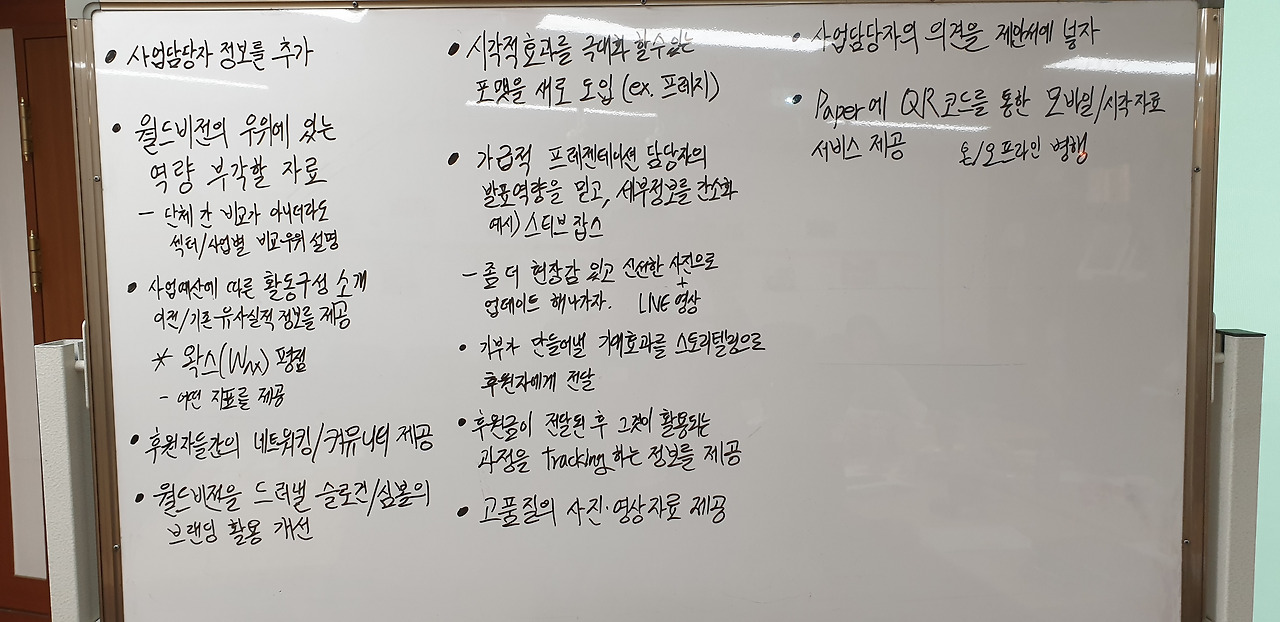 • 사업담당자 정보를 추가
• 월드비전의 우위에 있는
역량 부각할 자료
- 단체 간 비교가 아니더라도
섹터/사업별 비교우위 설명
• 사업예산에 따른 활동구성 소개
이전/기존 유사실적 정보를 제공
* 왁스(Wax) 평점
- 어떤 지표를 제공
• 후원자들간의 네트워킹/커뮤니티 제공
• 월드비전을 드러낼 슬로건/심볼의
브랜딩 활용 개선
• 시각적효과를 극대화 할수있는
포맷을 새로 도입 (ex. 프레지)
• 가급적 프레젠테이션 담당자의
발표역량을 믿고, 세부정보를 간소화
예시) 스티브 잡스
- 좀 더 현장감 있고 신선한 사진으로
+
업데이트 해나가자. LIVE 영상
• 기부가 만들어낼 기대효과를 스토리텔링으로
후원자에게 전달
• 후원금이 전달된 후 그것이 활용되는
과정을 tracking 하는 정보를 제공
• 고품질의 사진·영상자료 제공
• 사업담당자의 의견을 제안서에 넣자
• Paper에 QR코드를 통한 모바일/시각자료
서비스 제공 온/오프라인 병행